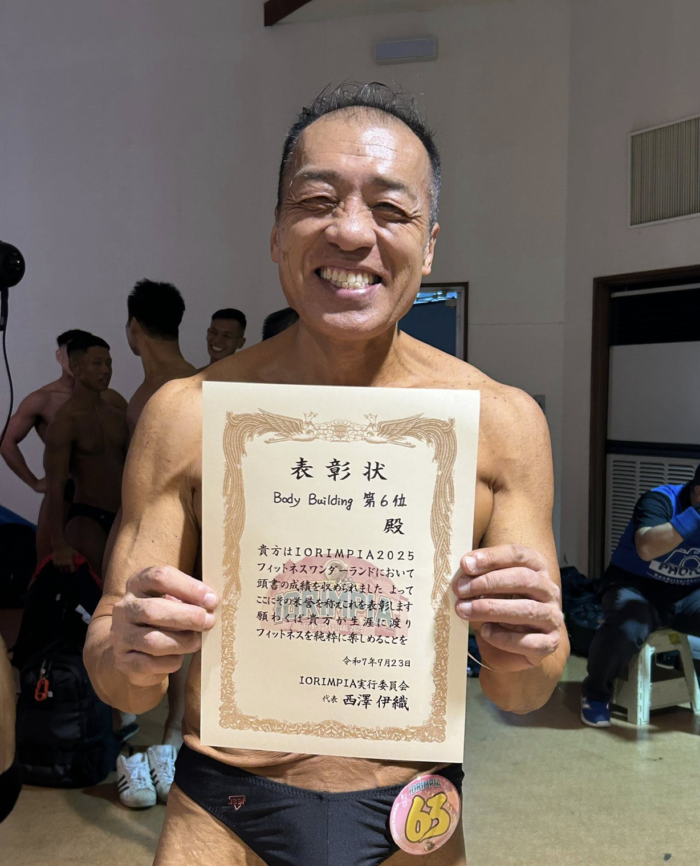 表彰状
Body Building 第6位
殿
貴方はIORIMPIA2025
フィットネスワンダーランドにおいて
頭書の成績を収められました よって
ここにその栄誉を称えこれを表彰します
願わくば貴方が生涯に渡り
フィットネスを純粋に楽しめることを
令和7年9月23日
IORIMPIA実行委員会
代表 西澤 伊織
IORIMPIA
63